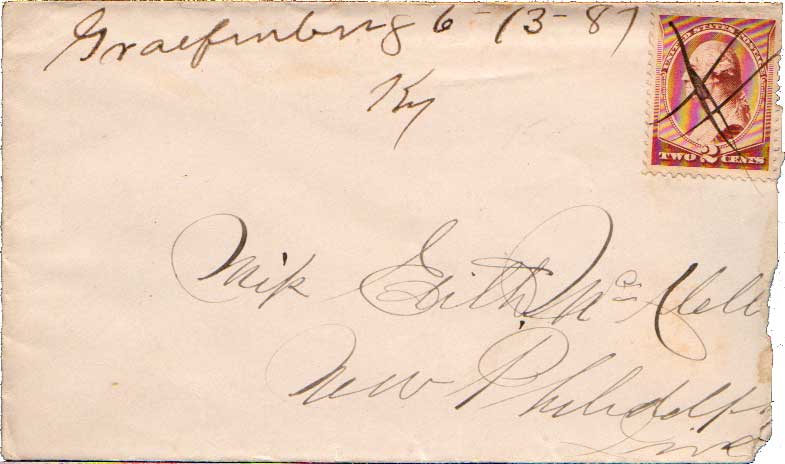 Graefenburg 6-13-87
Ky
UNITED STATES POSTAGE
TWO 2 CENTS
Miss Edith McClell
New Philadelph
Ind